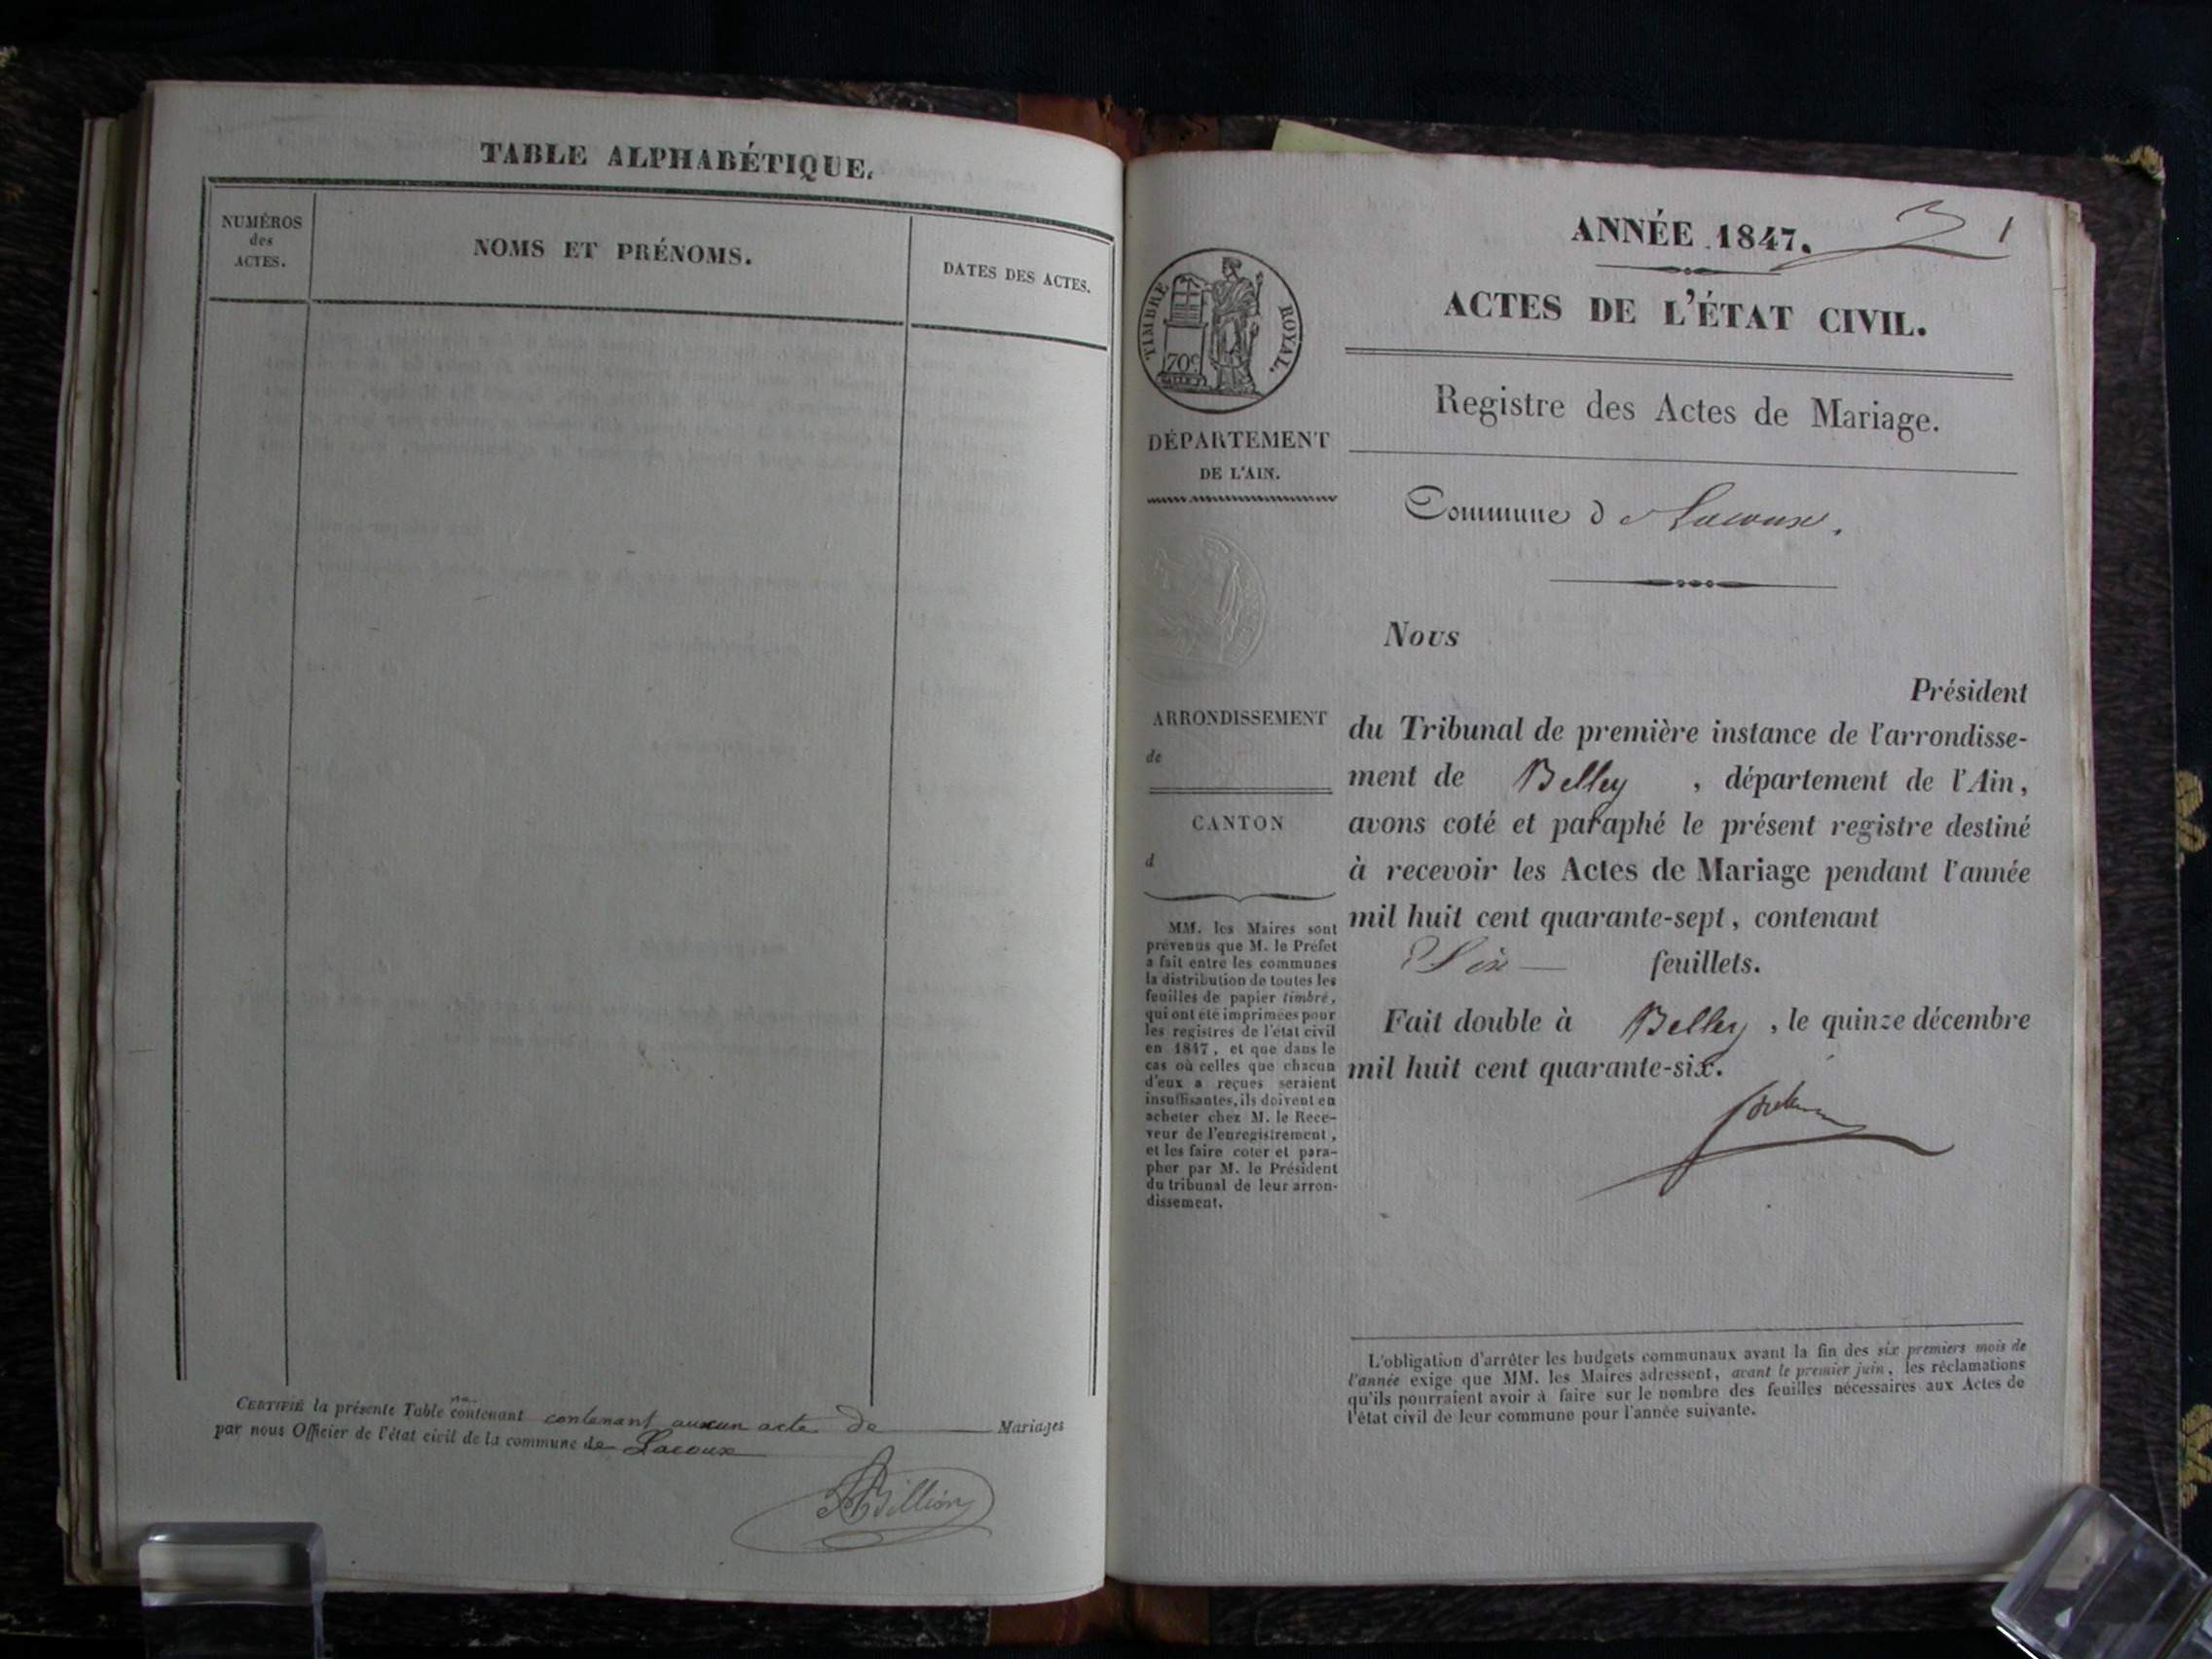 TABLE ALPHABÉTIQUE.
NUMÉROS
des
ACTES.
NOMS ET PRÉNOMS.
DATES DES ACTES.
CERTIFIÉ la présente Table contenant contenant aucun acte de Mariages
par nous Officier de l'état civil de la commune de Lacoux
Billion
ANNÉE 1847. 1
ACTES DE L'ÉTAT CIVIL.
Registre des Actes de Mariage.
TIMBRE ROYAL.
70c
DÉPARTEMENT
DE L'AIN.
Commune de Lacoux.
ARRONDISSEMENT
de
CANTON
d
MM. les Maires sont
prévenus que M. le Préfet
a fait entre les communes
la distribution de toutes les
feuilles de papier timbré,
qui ont été imprimées pour
les registres de l'état civil
en 1847, et que dans le
cas où celles que chacun
d'eux a reçues seraient
insuffisantes, ils doivent en
acheter chez M. le Rece-
veur de l'enregistrement,
et les faire coter et para-
pher par M. le Président
du tribunal de leur arron-
dissement.
Nous
Président
du Tribunal de première instance de l'arrondisse-
ment de Belley , département de l'Ain,
avons coté et paraphé le présent registre destiné
à recevoir les Actes de Mariage pendant l'année
mil huit cent quarante-sept, contenant
Six feuillets.
Fait double à Belley , le quinze décembre
mil huit cent quarante-six.
L'obligation d'arrêter les budgets communaux avant la fin des six premiers mois de
l'année exige que MM. les Maires adressent, avant le premier juin, les réclamations
qu'ils pourraient avoir à faire sur le nombre des feuilles nécessaires aux Actes de
l'état civil de leur commune pour l'année suivante.